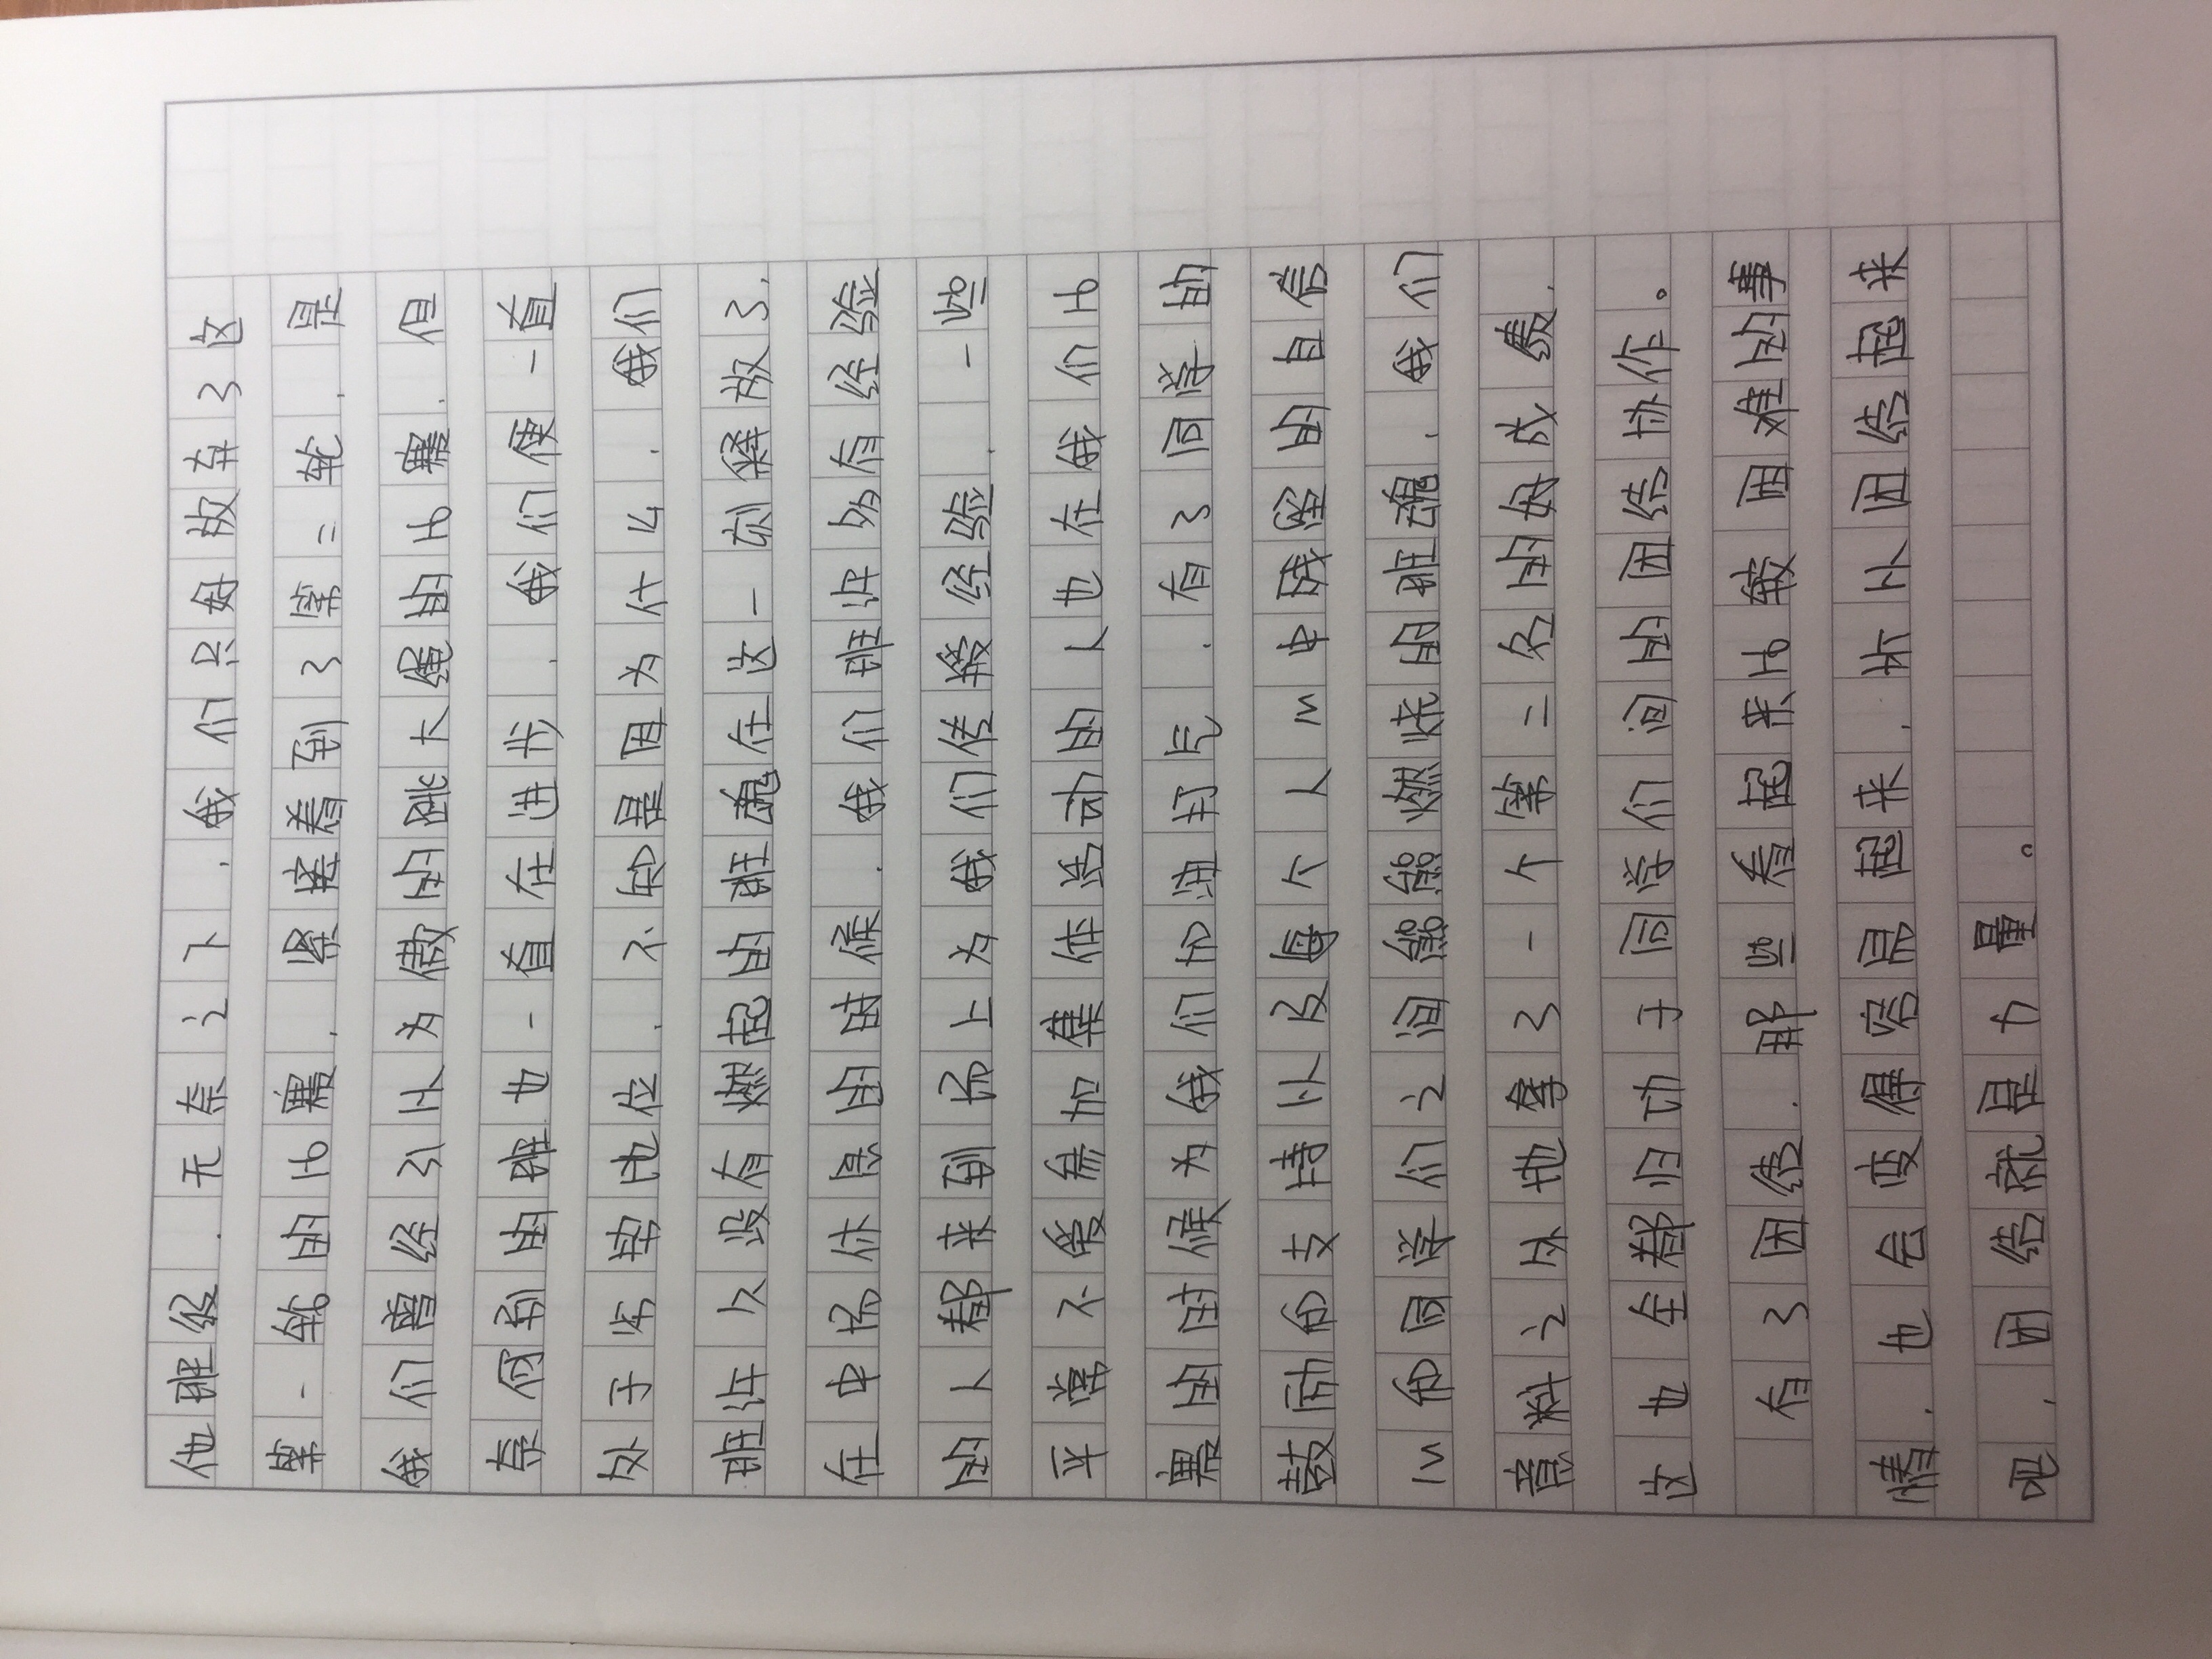 他班级，无奈之下，我们只好放弃了这
第一轮的比赛，紧接着到了第二轮，是
我们曾经引以为傲的跳大绳的比赛，但
奈何别的班也一直在进步，我们便一直
处于劣势地位，不知是因为什么，我们
班许久没有燃起的班魂在这一刻释放了，
在中场休息的时候，我们班许多有经验
的人都来到场上为我们传授经验，一些
平常不爱参加集体活动的人也在我们比
赛的时候为我们加油打气，有了同学的
鼓励和支持以及每个人心中的自信
心和同学们之间熊熊燃烧的班魂，我们
意料之外地拿了一个第二名的好成绩，
这也全都归功于同学们间的团结协作。
有了团结，那些看起来比较困难的事
情，也会变得容易起来，所以团结起来
吧，团结就是力量。